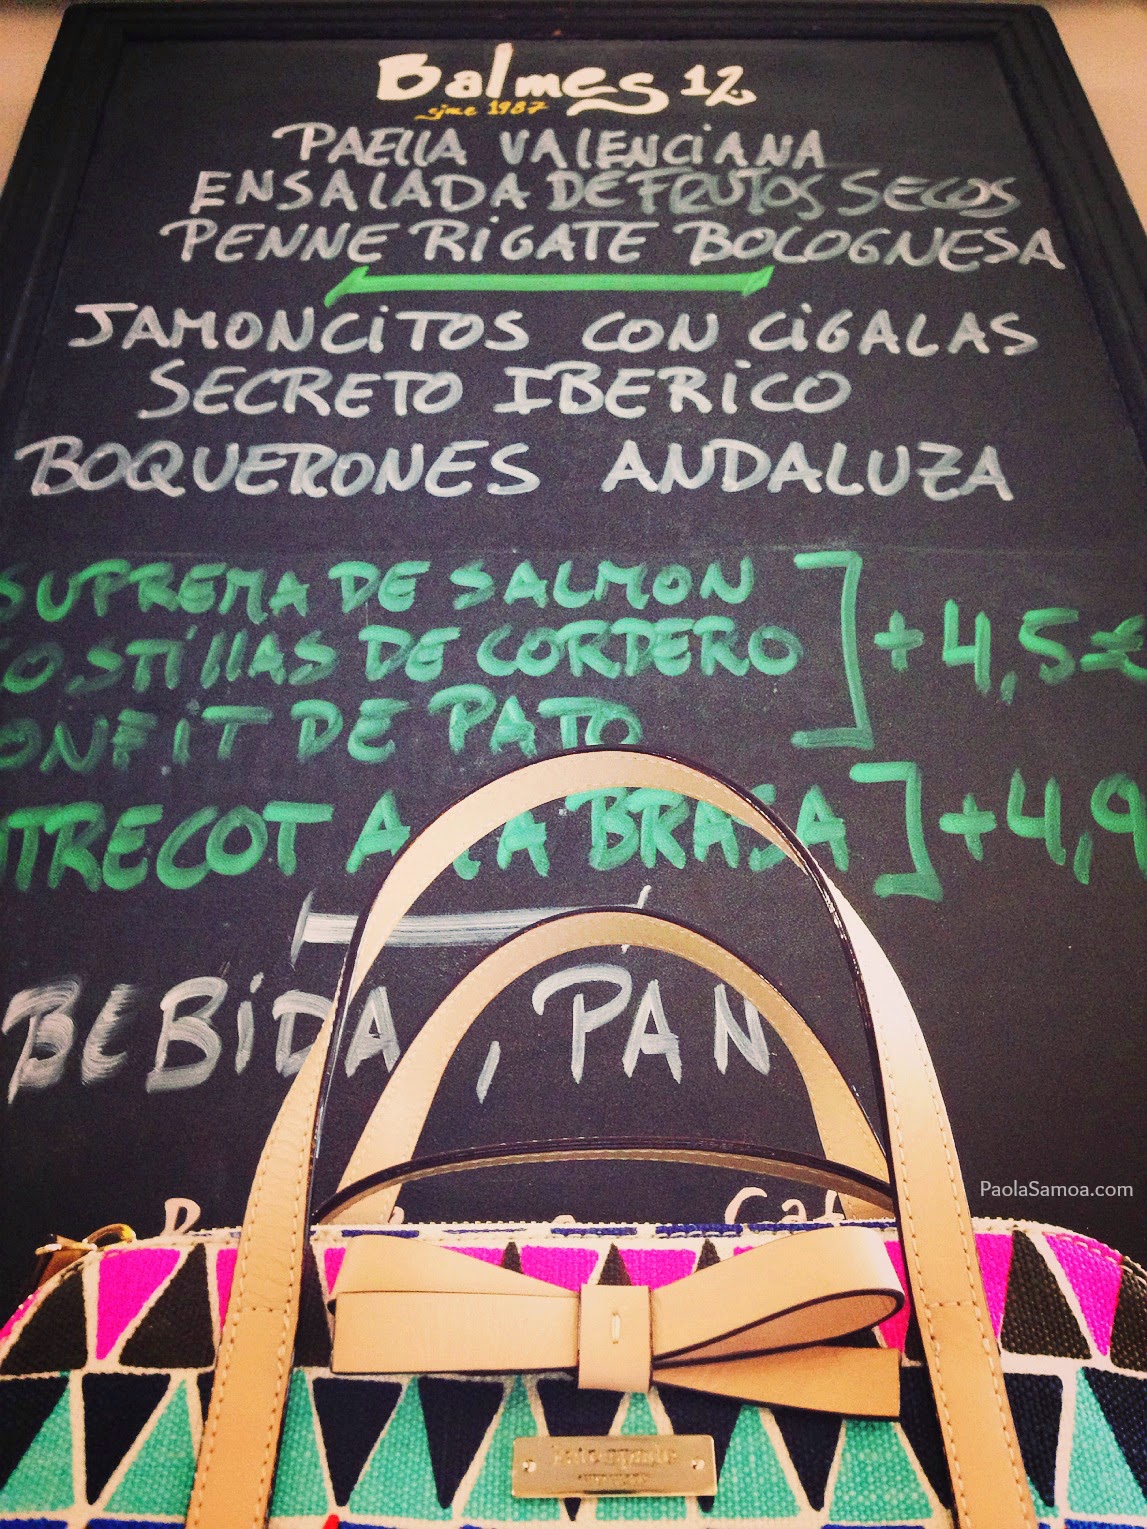 Balmes 12
since 1987
PAELLA VALENCIANA
ENSALADA DE FRUTOS SECOS
PENNE RIGATE BOLOGNESA
JAMONCITOS CON CIGALAS
SECRETO IBERICO
BOQUERONES ANDALUZA
SUPREMA DE SALMON
COSTILLAS DE CORDERO
+4,5€
ONFIT DE PATO
TRECOT A LA BRASA
+4,9
BEBIDA, PAN
PaolaSamoa.com
kate spade